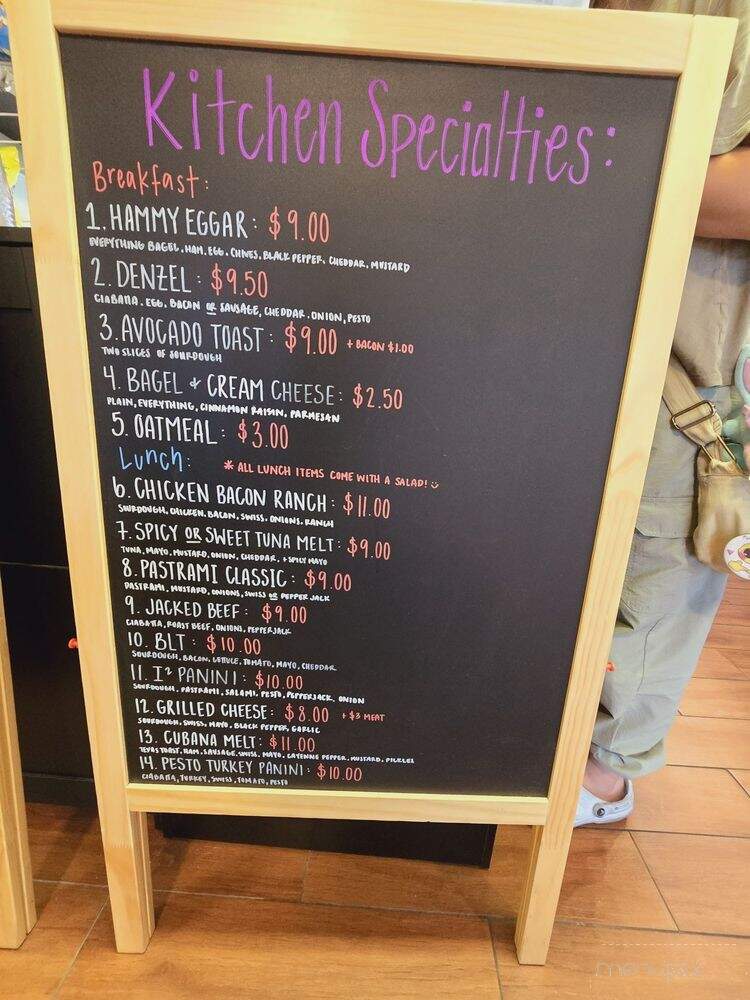 Kitchen Specialties:
Breakfast:
1. HAMMY EGGAR: $9.00
EVERYTHING BAGEL, HAM, EGG, CHIVES, BLACK PEPPER, CHEDDAR, MUSTARD
2. DENZEL: $9.50
CIABATTA, EGG, BACON OR SAUSAGE, CHEDDAR, ONION, PESTO
3. AVOCADO TOAST: $9.00 + BACON $1.00
TWO SLICES OF SOURDOUGH
4. BAGEL + CREAM CHEESE: $2.50
PLAIN, EVERYTHING, CINNAMON RAISIN, PARMESAN
5. OATMEAL: $3.00
Lunch: * ALL LUNCH ITEMS COME WITH A SALAD! ☺
6. CHICKEN BACON RANCH: $11.00
SOURDOUGH, CHICKEN, BACON, SWISS, ONIONS, RANCH
7. SPICY OR SWEET TUNA MELT: $9.00
TUNA, MAYO, MUSTARD, ONION, CHEDDAR, + SPICY MAYO
8. PASTRAMI CLASSIC: $9.00
PASTRAMI, MUSTARD, ONIONS, SWISS OR PEPPER JACK
9. JACKED BEEF: $9.00
CIABATTA, ROAST BEEF, ONIONS, PEPPERJACK
10. BLT: $10.00
SOURDOUGH, BACON, LETTUCE, TOMATO, MAYO, CHEDDAR
11. I² PANINI: $10.00
SOURDOUGH, PASTRAMI, SALAMI, PESTO, PEPPERJACK, ONION
12. GRILLED CHEESE: $8.00 + $3 MEAT
SOURDOUGH, SWISS, MAYO, BLACK PEPPER, GARLIC
13. CUBANA MELT: $11.00
TEXAS TOAST, HAM, SAUSAGE, SWISS, MAYO, CAYENNE PEPPER, MUSTARD, PICKLES
14. PESTO TURKEY PANINI: $10.00
CIABATTA, TURKEY, SWISS, TOMATO, PESTO
menupix